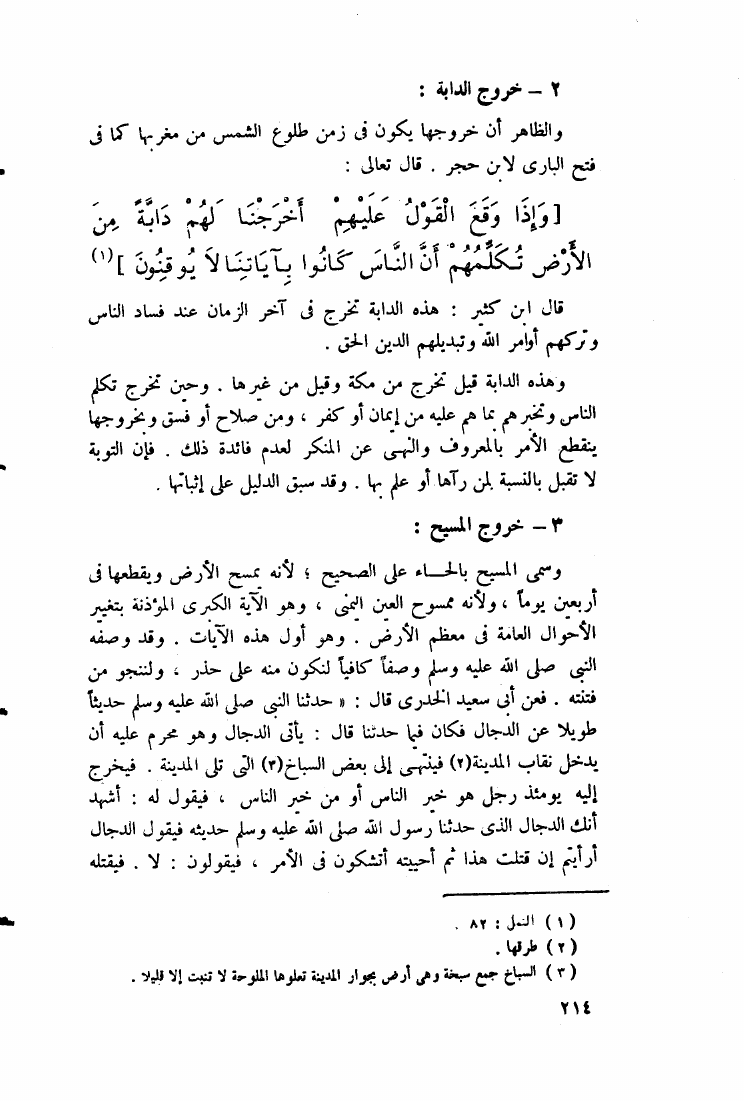 ٢ – خروج الدابة :
والظاهر أن خروجها يكون فى زمن طلوع الشمس من مغربها كما فى
فتح البارى لابن حجر . قال تعالى :
[وَإِذَا وَقَعَ الْقَوْلُ عَلَيْهِمْ أَخْرَجْنَا لَهُمْ دَابَّةً مِنَ
الأَرْضِ تُكَلِّمُهُمْ أَنَّ النَّاسَ كَانُوا بِآيَاتِنَا لاَ يُوقِنُونَ ](١)
قال ابن كثير : هذه الدابة تخرج فى آخر الزمان عند فساد الناس
وتركهم أوامر الله وتبديلهم الدين الحق .
وهذه الدابة قيل تخرج من مكة وقيل من غيرها . وحين تخرج تكلم
الناس وتخبرهم بما هم عليه من إيمان أو كفر ، ومن صلاح أو فسق وبخروجها
ينقطع الأمر بالمعروف والنهى عن المنكر لعدم فائدة ذلك . فإن التوبة
لا تقبل بالنسبة لمن رآها أو علم بها . وقد سبق الدليل على إثباتها .
٣ – خروج المسيح :
وسمى المسيح بالحاء على الصحيح ؛ لأنه يمسح الأرض ويقطعها فى
أربعين يوماً ، ولأنه ممسوح العين اليمنى ، وهو الآية الكبرى المؤذنة بتغيير
الأحوال العامة فى معظم الأرض . وهو أول هذه الآيات . وقد وصفه
النبى صلى الله عليه وسلم وصفاً كافياً لنكون منه على حذر ، ولننجو من
فتنته . فعن أبى سعيد الخدرى قال : « حدثنا النبى صلى الله عليه وسلم حديثاً
طويلا عن الدجال فكان فيما حدثنا قال : يأتى الدجال وهو محرم عليه أن
يدخل نقاب المدينة(٢) فينتهى إلى بعض السباخ(٣) التى تلى المدينة . فيخرج
إليه يومئذ رجل هو خير الناس أو من خير الناس ، فيقول له : أشهد
أنك الدجال الذى حدثنا رسول الله صلى الله عليه وسلم حديثه فيقول الدجال
أرأيتم إن قتلت هذا ثم أحييته أتشكون فى الأمر ، فيقولون : لا . فيقتله
(١) النمل : ٨٢ .
(٢) طرقها .
(٣) السباخ جمع سبخة وهى أرض بجوار المدينة تعلوها الملوحة لا تنبت إلا قليلا .
٢١٤